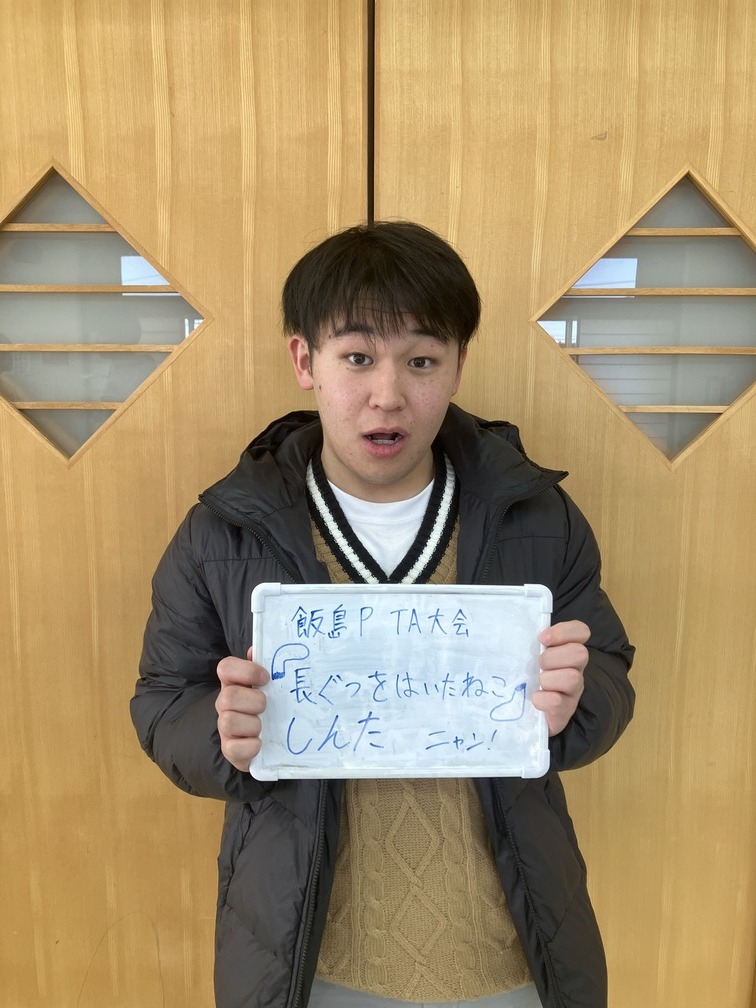 飯島PTA大会
『長ぐつをはいたねこ』
しんた ニャン!